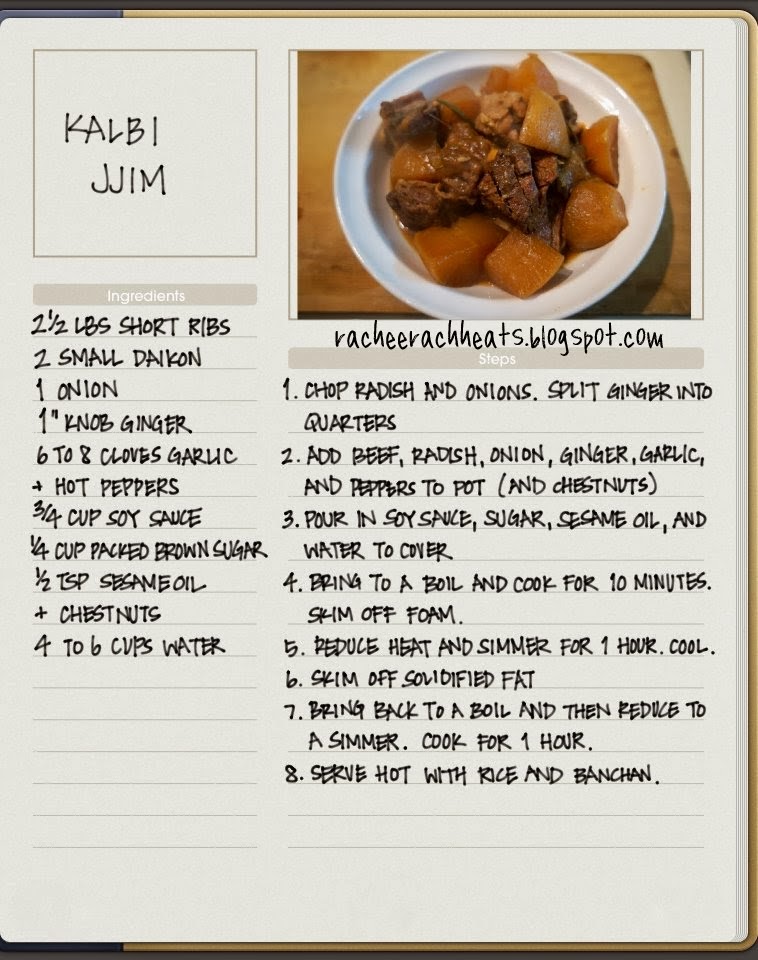 KALBI
JJIM
Ingredients
2 1/2 LBS SHORT RIBS
2 SMALL DAIKON
1 ONION
1" KNOB GINGER
6 TO 8 CLOVES GARLIC
+ HOT PEPPERS
3/4 CUP SOY SAUCE
1/4 CUP PACKED BROWN SUGAR
1/2 TSP SESAME OIL
+ CHESTNUTS
4 TO 6 CUPS WATER
racheerachheats.blogspot.com
Steps
1. CHOP RADISH AND ONIONS. SPLIT GINGER INTO
QUARTERS
2. ADD BEEF, RADISH, ONION, GINGER, GARLIC,
AND PEPPERS TO POT (AND CHESTNUTS)
3. POUR IN SOY SAUCE, SUGAR, SESAME OIL, AND
WATER TO COVER
4. BRING TO A BOIL AND COOK FOR 10 MINUTES.
SKIM OFF FOAM.
5. REDUCE HEAT AND SIMMER FOR 1 HOUR. COOL.
6. SKIM OFF SOLIDIFIED FAT
7. BRING BACK TO A BOIL AND THEN REDUCE TO
A SIMMER. COOK FOR 1 HOUR.
8. SERVE HOT WITH RICE AND BANCHAN.